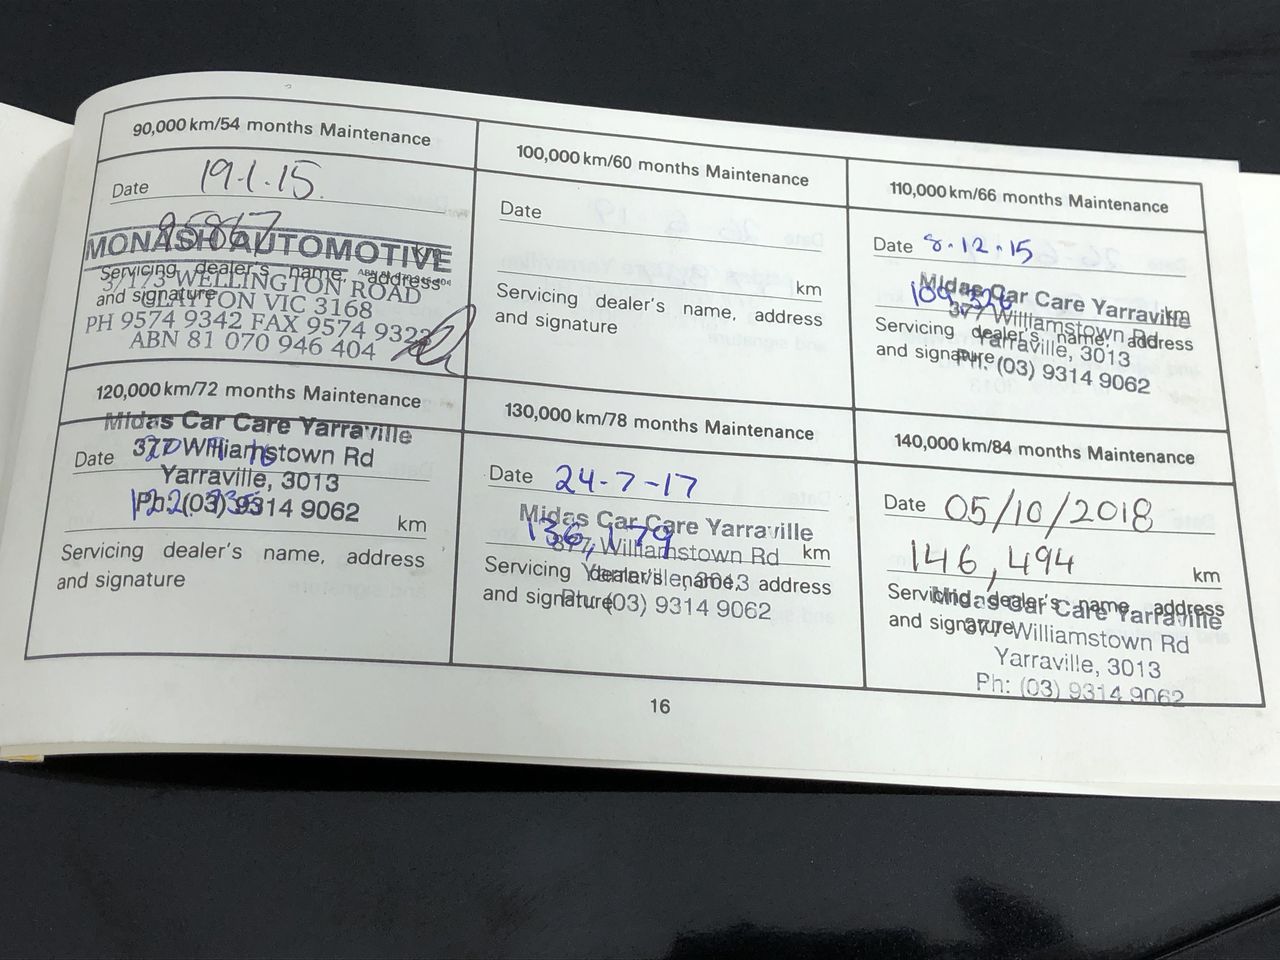 90,000 km/54 months Maintenance
Date 19.1.15.
95867 km
MONASH AUTOMOTIVE
Servicing dealer's name, address
and signature
3/173 WELLINGTON ROAD
CLAYTON VIC 3168
PH 9574 9342 FAX 9574 9322
ABN 81 070 946 404
100,000 km/60 months Maintenance
Date
km
Servicing dealer's name, address
and signature
110,000 km/66 months Maintenance
Date 8.12.15
109,326 km
Midas Car Care Yarraville
377 Williamstown Rd
Servicing dealer's name, address
and signature
Yarraville, 3013
Ph: (03) 9314 9062
120,000 km/72 months Maintenance
Midas Car Care Yarraville
377 Williamstown Rd
Date
Yarraville, 3013
Ph: (03) 9314 9062
km
Servicing dealer's name, address
and signature
130,000 km/78 months Maintenance
Date 24-7-17
Midas Car Care Yarraville
136,179 km
377 Williamstown Rd
Servicing dealer's name, address
and signature
Yarraville, 3013
Ph: (03) 9314 9062
140,000 km/84 months Maintenance
Date 05/10/2018
146,494 km
Servicing dealer's name, address
and signature
Midas Car Care Yarraville
377 Williamstown Rd
Yarraville, 3013
Ph: (03) 9314 9062
16